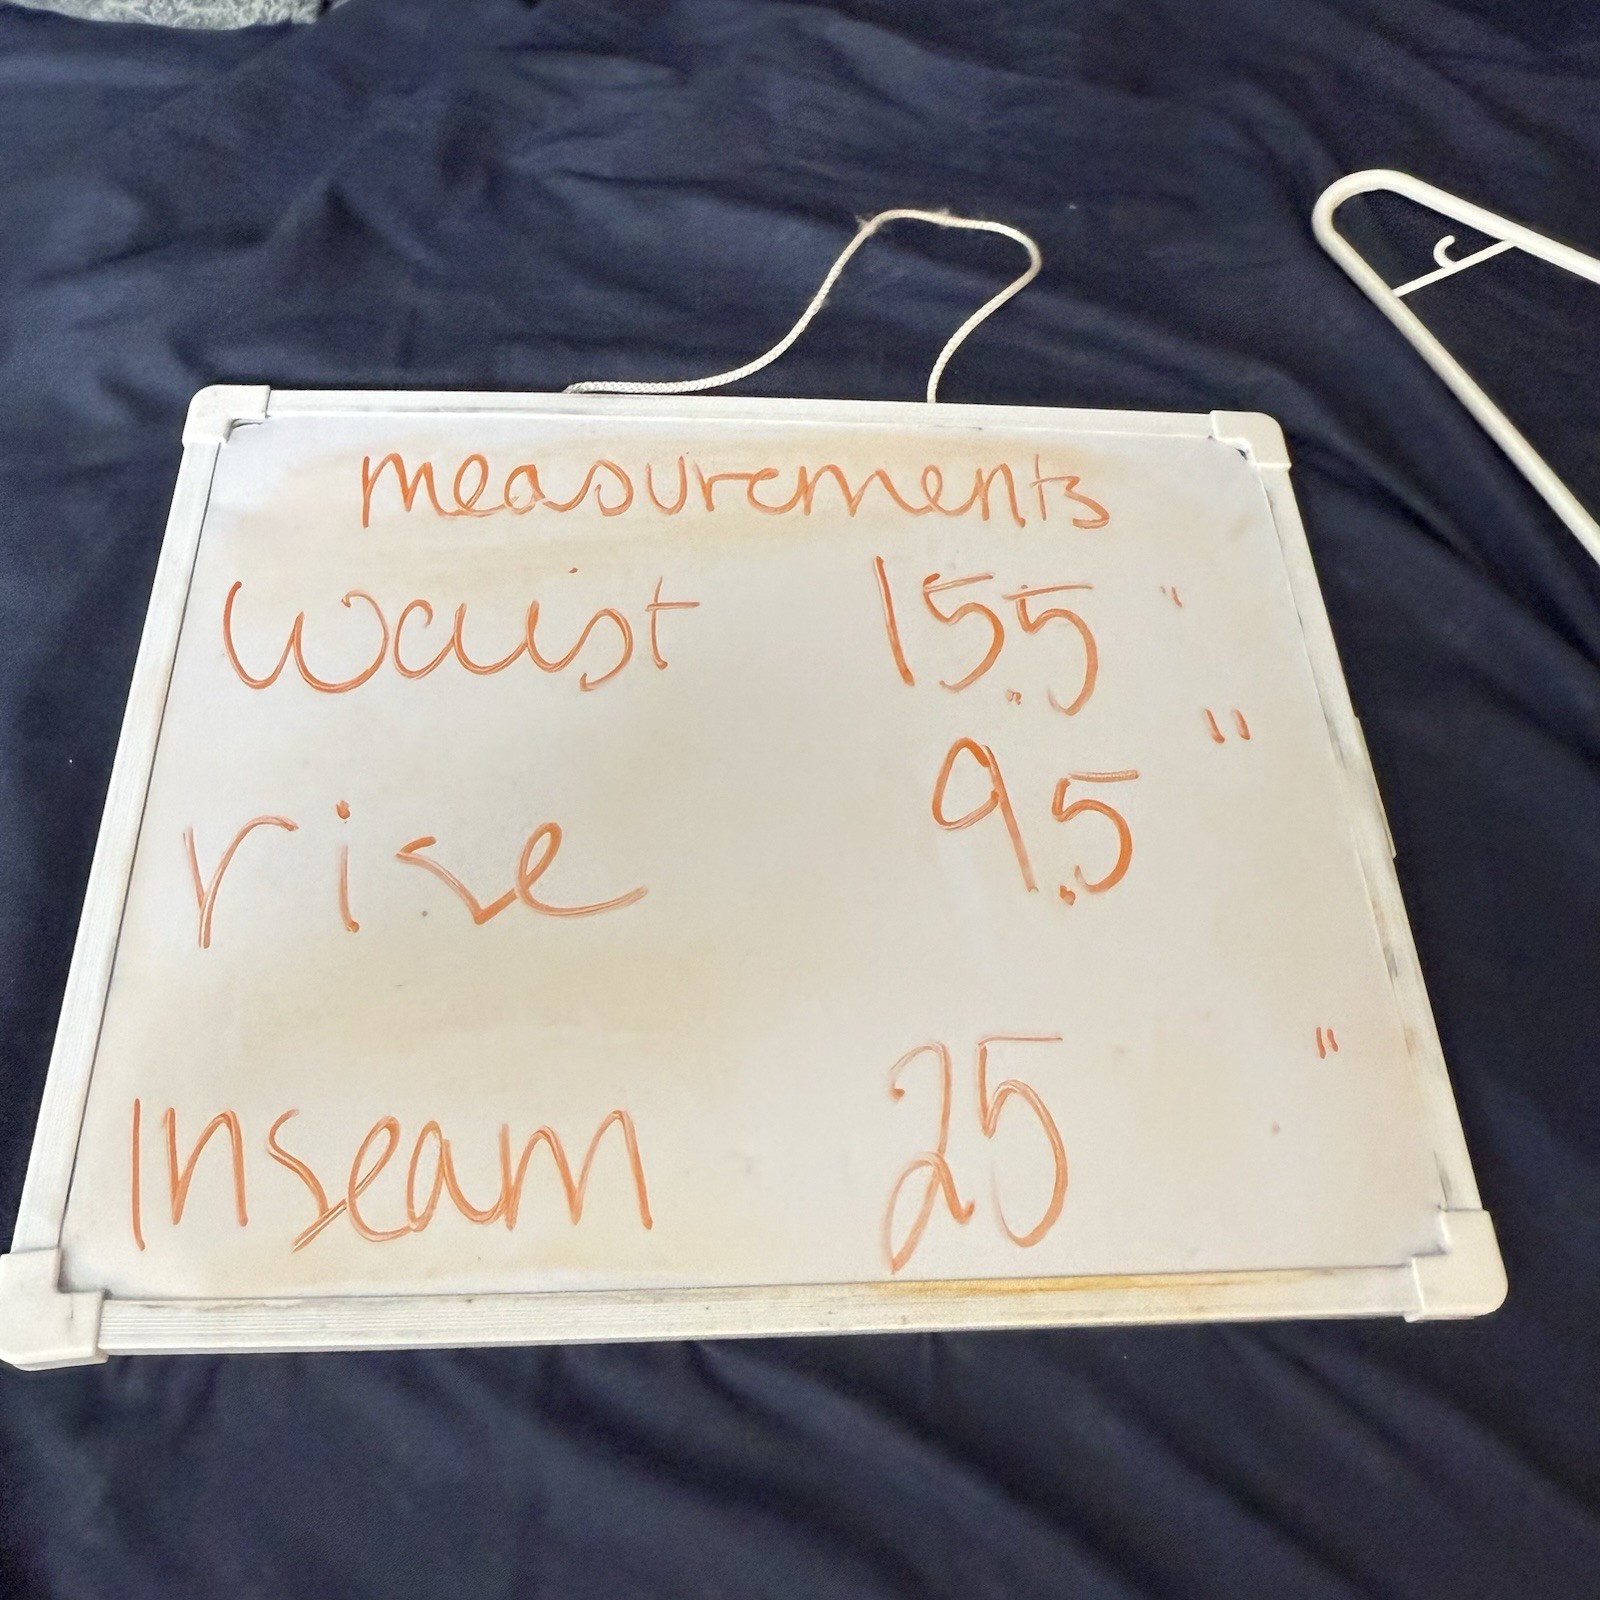 measurements
waist 15.5 "
rise 9.5 "
Inseam 25 "